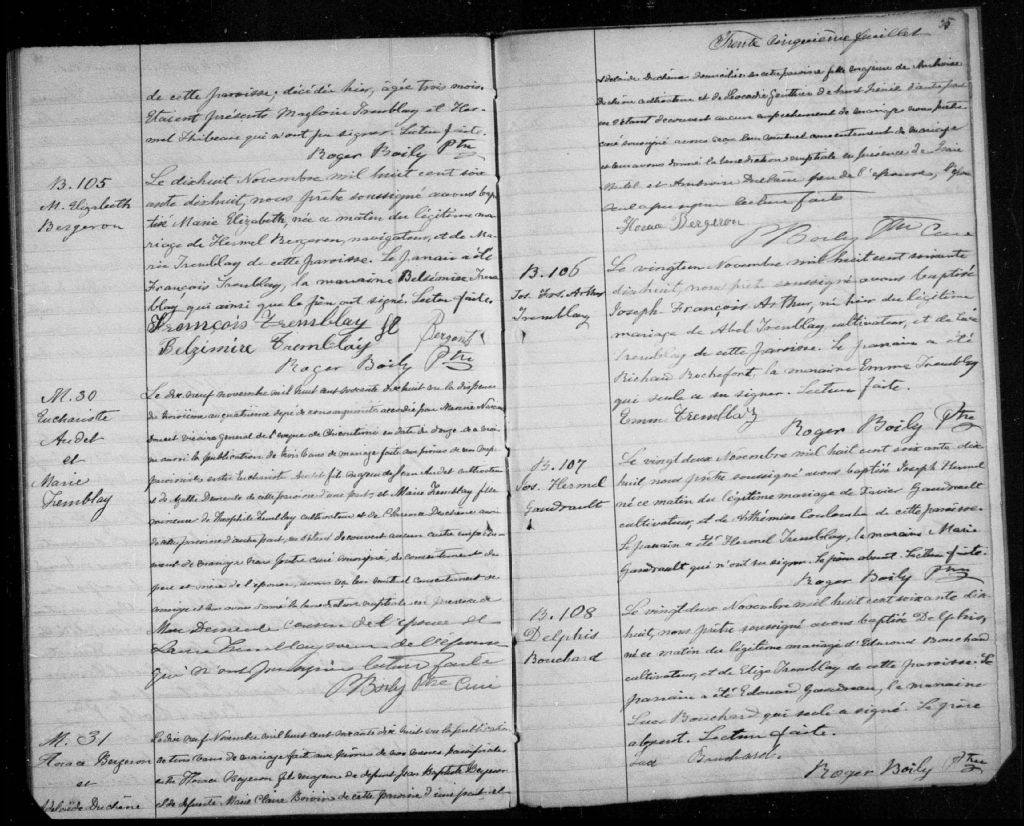 de cette paroisse, décédée hier, âgée trois mois.
Etaient présents Magloire Tremblay et Her-
mel Thibeau qui n'ont pu signer. Lecture faite.
Roger Boily Ptre
B. 105
M. Elizabeth
Bergeron
Le dixhuit Novembre mil huit cent soix
ante dixhuit, nous prêtre soussigné avons bap
tisé Marie Elizabeth, née ce matin du légitime ma-
riage de Hermel Bergeron, navigateur, et de Ma-
rie Tremblay de cette paroisse. Le parrain a été
François Tremblay, la marraine Belzémire Trem
blay qui ainsi que le père ont signé. Lecture faite.
François Tremblay
Belzimire Tremblay
Roger Boily Ptre
M. 30
Eucharistte
Audet
et
Marie
Tremblay
Le dix neuf novembre mil huit cent soixante dix huit vu la dispense
du au quatrième degré de consanguinité accordée par
vicaire général de l'évêque de Chicoutimi en date du douze de ce mois
vu aussi la publication de trois bans de mariage faite aux prônes de nos
paroissiales entre Euchariste Audet fils majeur de Jean Audet cultivateur
et de Demeule de cette paroisse d'une part, et Marie Tremblay fille
mineure de Théophile Tremblay cultivateur et de Duchesne aussi
de cette paroisse d'autre part, ne s'étant découvert aucun autre empêche
ment de mariage nous prêtre curé soussigné, du consentement du
père et mère de l'épouse, avons reçu leur mutuel consentement de
mariage et leur avons donné la bénédiction nuptiale en présence de
Marc Demeule cousin de l'époux et
Tremblay de l'épouse
qui n'ont pu signer lecture faite
Boily Ptre Curé
M. 31
Horace Bergeron
et
Adelaïde Duchêne
Le dix neuf Novembre mil huit cent soixante dix huit vu la publication
de trois bans de mariage faite aux prônes de nos messes paroissiales
entre Horace Bergeron fils majeur de défunt Jean Baptiste Bergeron
et de défunte Marie Claire Boivin de cette paroisse d'une part et
35
Trente cinquième feuillet
Adelaïde Duchêne domiciliée en cette paroisse fille majeure de Ambroise
Duchêne cultivateur et de Léocadie Gauthier de Saint Irénée d'autre part
ne s'étant découvert aucun empêchement de mariage nous prêtre
curé soussigné avons reçu leur mutuel consentement de mariage
et leur avons donné la bénédiction nuptiale en présence de
et Ambroise Duchêne père de l'épouse, l'époux
seul a pu signer lecture faite
Horace Bergeron
Boily Ptre Curé
B. 106
Jos. Frs. Arthur
Tremblay
Le vingt Novembre mil huit cent soixante
dixhuit, nous prêtre soussigné avons baptisé
Joseph François Arthur, né hier du légitime
mariage de Abel Tremblay cultivateur, et de
Tremblay de cette paroisse. Le parrain a été
Richard Rochefort, la marraine Emma Tremblay
qui seule a su signer. Lecture faite.
Emma Tremblay
Roger Boily Ptre
B. 107
Jos. Hermel
Gaudrault
Le vingt deux Novembre mil huit cent soixante dix
huit nous prêtre soussigné avons baptisé Joseph Hermel
né ce matin du légitime mariage de Xavier Gaudrault
cultivateur, et de Arthémise Coulombe de cette paroisse.
Le parrain a été Hermel Tremblay, la marraine Marie
Gaudrault qui n'ont su signer. Le père absent. Lecture faite.
Roger Boily Ptre
B. 108
Delphis
Bouchard
Le vingt deux Novembre mil huit cent soixante dix
huit, nous prêtre soussigné avons baptisé Delphis,
né ce matin du légitime mariage d'Edouard Bouchard
cultivateur, et de Eliza Tremblay de cette paroisse. Le
parrain a été Edouard Gaudreau, la marraine
Luce Bouchard qui seule a signé. Le père
absent. Lecture faite.
Bouchard.
Roger Boily Ptre